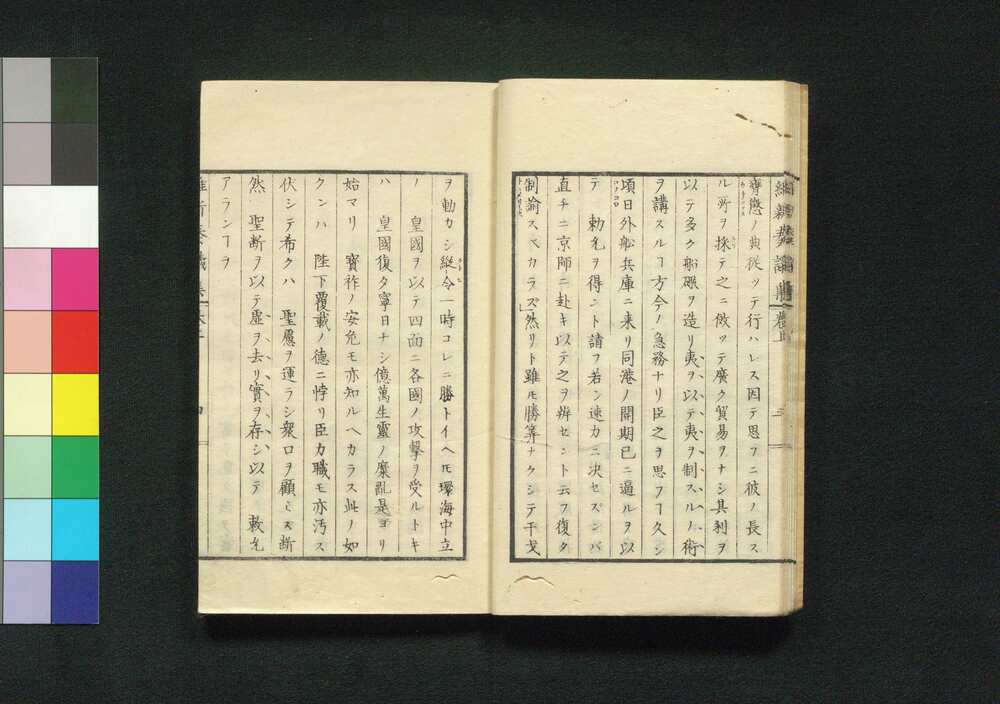 膺懲ノ典従ツテ行ハレス因テ思フニ彼ノ長ス
ル所ヲ採テ之ニ倣ッテ廣ク貿易ヲナシ其利ヲ
以テ多ク船礮ヲ造リ夷ヲ以テ夷ヲ制スルノ術
ヲ講スルヿ方今ノ急務ナリ臣之ヲ思フヿ久シ
項日外舩兵庫ニ来リ同港ノ開期已ニ逼ルヲ以
テ 勅允ヲ得ント請フ若シ速カニ决セズンバ
直チニ京師ニ赴キ以テ之ヲ辨セント云フ復タ
制諭スベカラズ然リト雖モ勝算ナクシテ干戈
ヲ動カシ縦令一時コレニ勝トイヘ𪜈環海中立
ノ 皇國ヲ以テ四面ニ各國ノ攻撃ヲ受ルトキ
ハ 皇國復タ寧日ナシ億萬生靈ノ糜亂是ヨリ
始マリ 寳祚ノ安危モ亦知ルヘカラス此ノ如
クンハ 陛下覆載ノ德ニ悖リ臣カ職モ亦汚ス
伏シテ希クハ 聖慮ヲ運ラシ衆口ヲ顧ミス断
然 聖断ヲ以テ虚ヲ去リ實ヲ存シ以テ 敕允
アランヿヲ